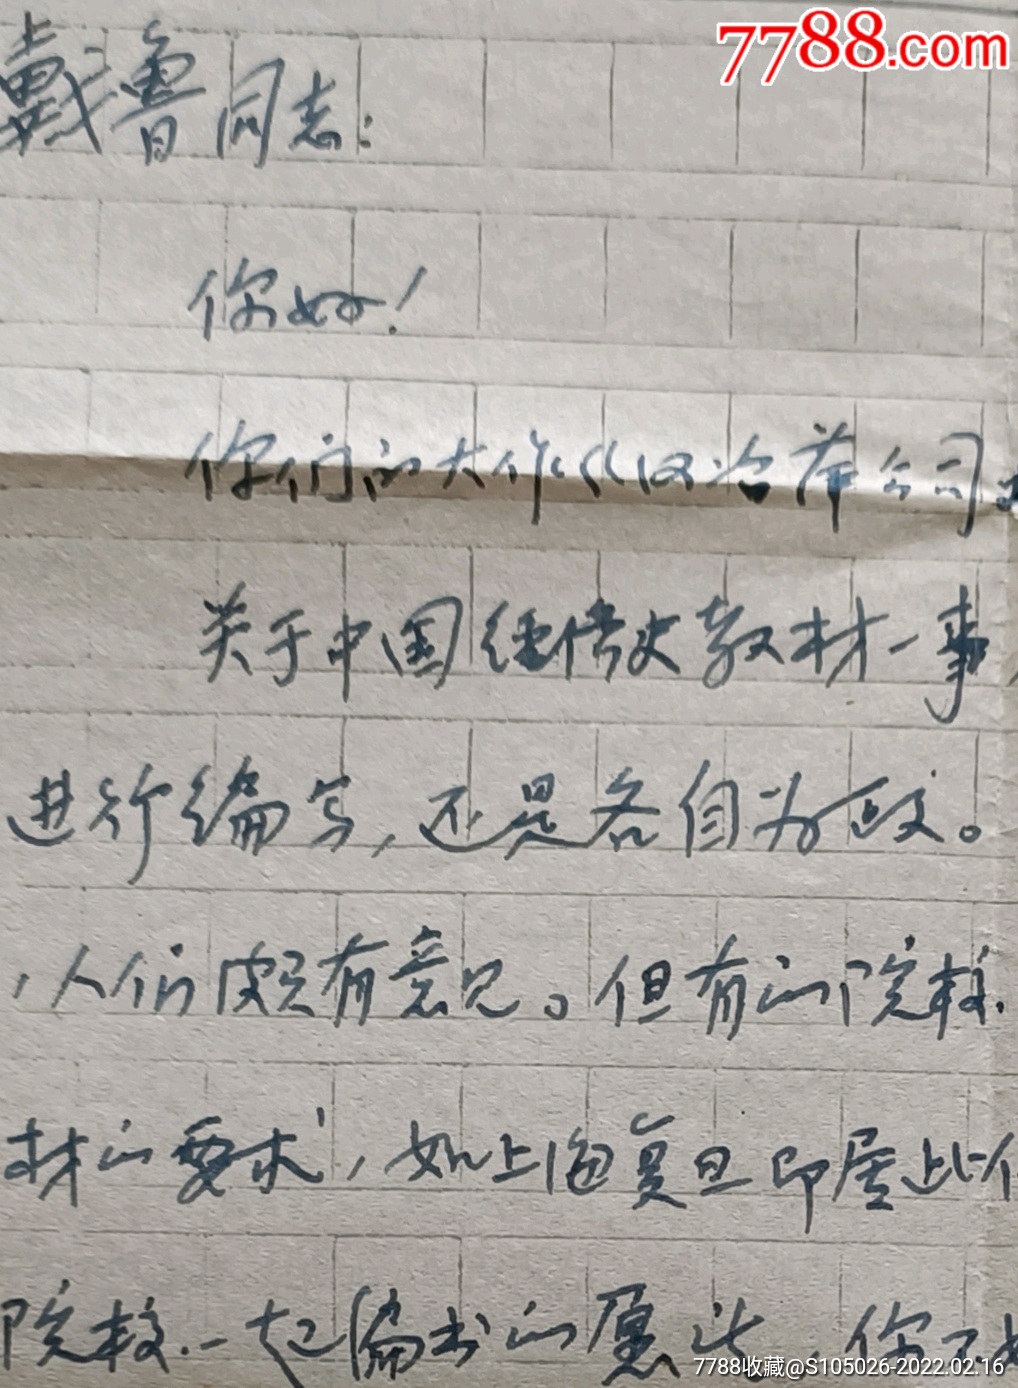 7788.com
戴鲁同志：
你好！
你们的大作《汉冶萍公司
关于中国经济史教材一事
进行编写，还是各自为政。
，人们颇有意见。但有的院校
材的要求，如上海复旦即属此
院校一起编书的愿，你
7788收藏@S105026-2022.02.16